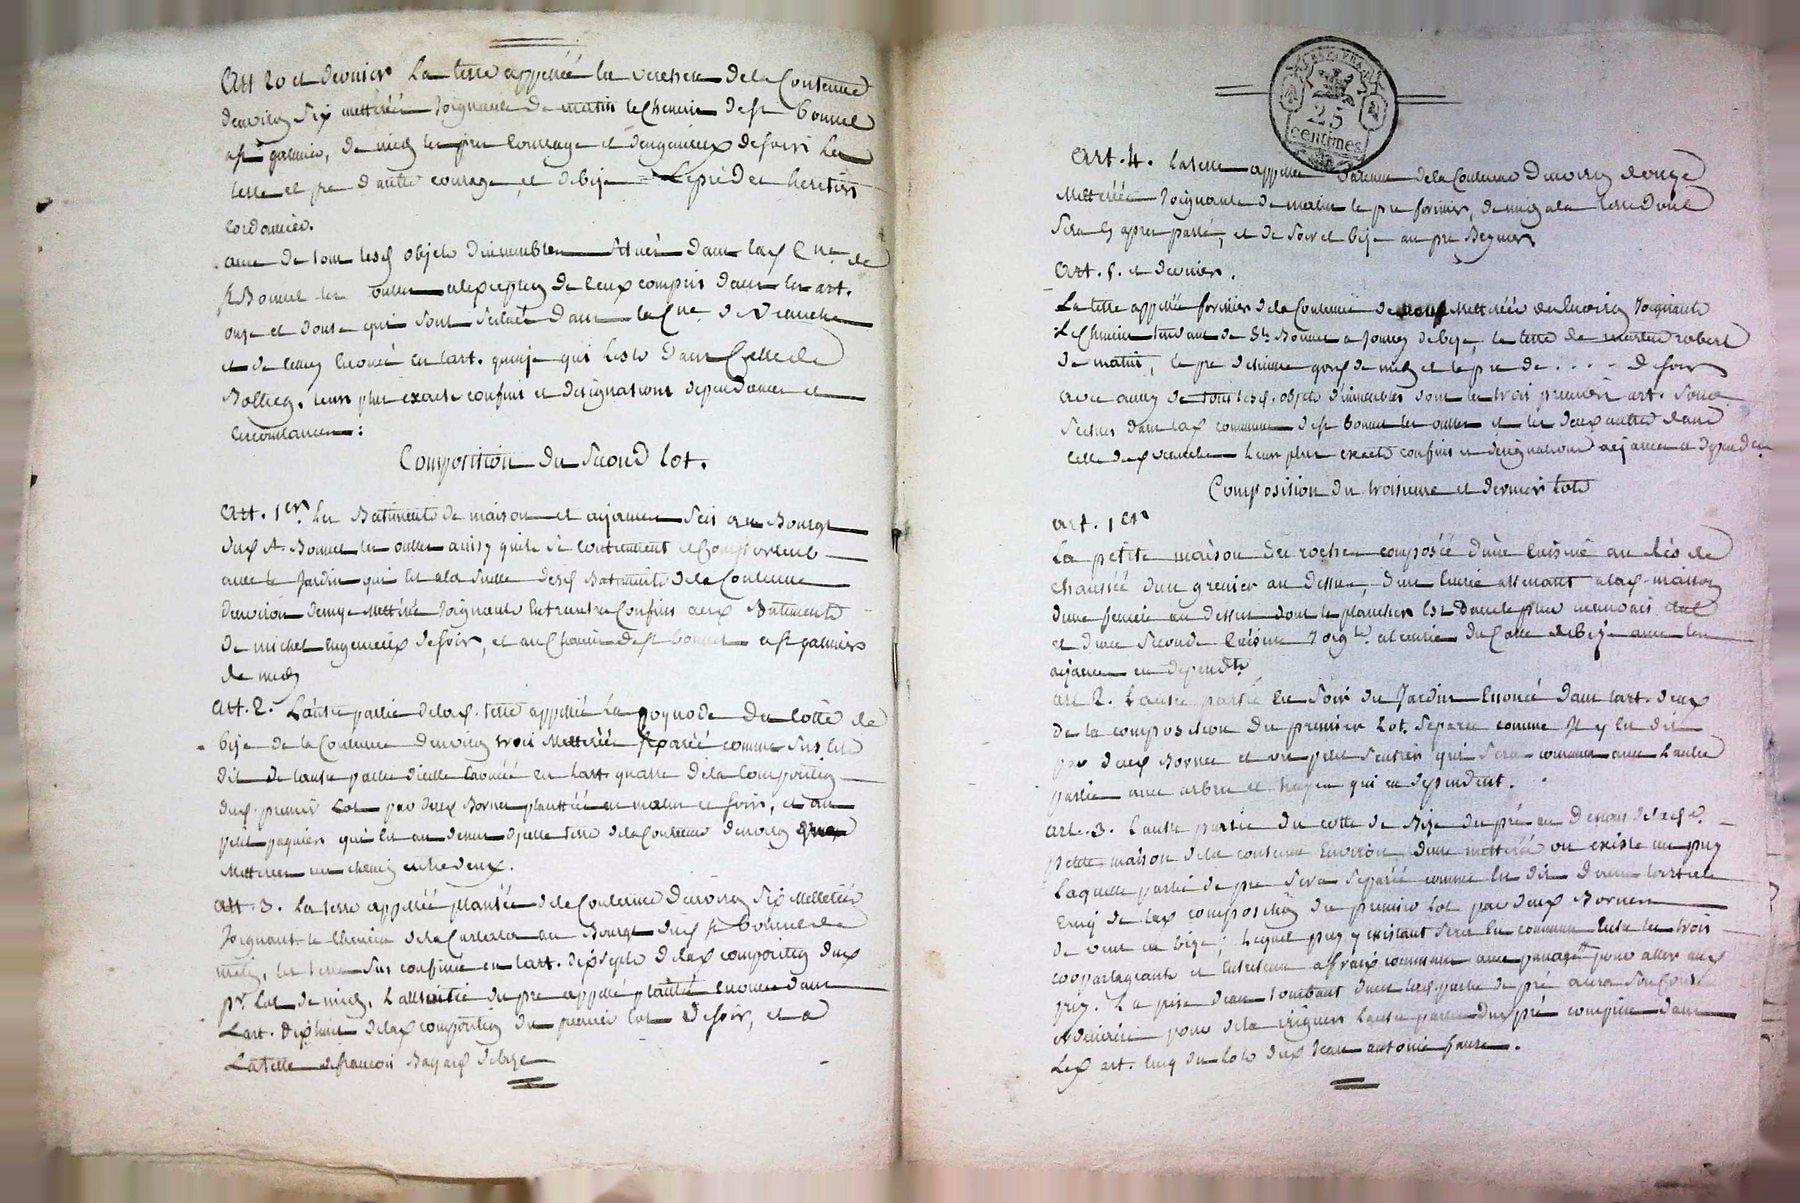 Art 20 et dernier La terre appellée la verchere de la Contenue
denviron Six metterée Joignante de matin le Chemin de st Bonnet
a st galmier, de midy les pre Courage et dengenieux de soir la
terre et pre d'autre courage, et de bize Le pré des heritiers
avec de tous lesd objets d'immeubles Situés dans lad Cne de
st Bonnet les oulles a lexception de Ceux compris dans les art.
onze et douze qui sont Situés dans la Cne de Veauche
et de celuy Enoncé en l'art. quinze qui Est dans Celle de
leurs plus exacte confins et désignations dependances et
Circonstances :
Composition du Second Lot.
Art. 1er. Les Batiments de maison et aijances Scis au Bourg
dud st Bonnet les oulles ainsy quils se contiennent et Comportent
avec le Jardin qui est a la Suitte desd Batiments de la Contenue
denviron demye Metterée Joignants Entrautres Confins aux Batiments
de michel Engenieux de soir, et au Chemin de st bonnet a st galmier
de midy
Art. 2. L'autre partie de lad. terre appellée La du cotté de
bize de la Contenue denviron trois Metterée Separée comme Sus est
dit de l'autre partie d'icelle Enoncée en l'art. quatre de la Composition
dud. premier Lot par deux Bornes plantées en matin et soir, et au
petit paquier qui est au denier de cette terre de la Contenue denviron
Metterée un chemin entre deux.
Art. 3. La terre appellée plantée de la Contenue denviron Six Metterée
Joignant le Chemin de la au Bourg dud st Bonnet de
midy, les terre Sus confinée en l'art. dix sept de lad composition dud
pr. Lot de midy, L'autre partie du pre appellé planté Enoncé dans
L'art. dix huit de lad composition du premier lot de soir, et a
La terre de francois de bize
25
centimes
Art. 4. La terre appellée de la Contenue denviron douze
Metterée Joignante de matin le pre fornier, de midy a la terre dont
Sera Cy apres parlé, et de Soir et bize au pre
Art. 5. et dernier.
La terre appellée fornier de la Contenue de neuf Metterée ou Environ Joignante
Le Chemin tendant de St Bonnet a de bize, la terre de martin robert
de matin, le pre d'etienne de midy et le pre de . . . . de soir
avec aussy de tous lesd. objets d'immeubles dont les trois premiers art. Sont
Scitués dans lad commune de st Bonnet les oulles et les deux autres dans
celle de Veauche leurs plus exacte confins et désignations aijances et dependces
Composition du troisieme et dernier lot
art. 1er
La petite maison de roche composée d'une Cuisine au rés de
chaussée d'un grenier au dessus, d'une Ecurie attenant a lad. maison
d'une feniere au dessus dont le plancher Est dans le plus mauvais etat
et d'une Seconde Cuisine Joigte et ecurie du Cotté de bize avec les
aijances en dependts
art 2. L'autre partie en Soir du Jardin Enoncé dans l'art. deux
De la composition du premier Lot. Separée comme Il y Est dit
par deux Bornes et un petit Sentier qui Sera commun avec l'autre
partie avec arbres et hayes qui en dependent.
art. 3. L'autre partie du cotté de Bize du pré au dessous de lad.
petite maison de la contenue Environ d'une metterée ou existe un puy
Laquelle partie de pre Sera Separée comme Est dit dans l'article
Cinq de lad composition du premier Lot par deux Bornes
de vent en bize ; Lequel puy y existant Sera En commun Entre les trois
copartageants et Entretenu a frais communs avec passage pour aller aud
puy. La prise d'eau tombant dans lad. partie de pré aura Son Cours
ordinaire pour de la irriguer L'autre partie dud pré comprise dans
Led art. Cinq du Lot dud Jean antoine faure.